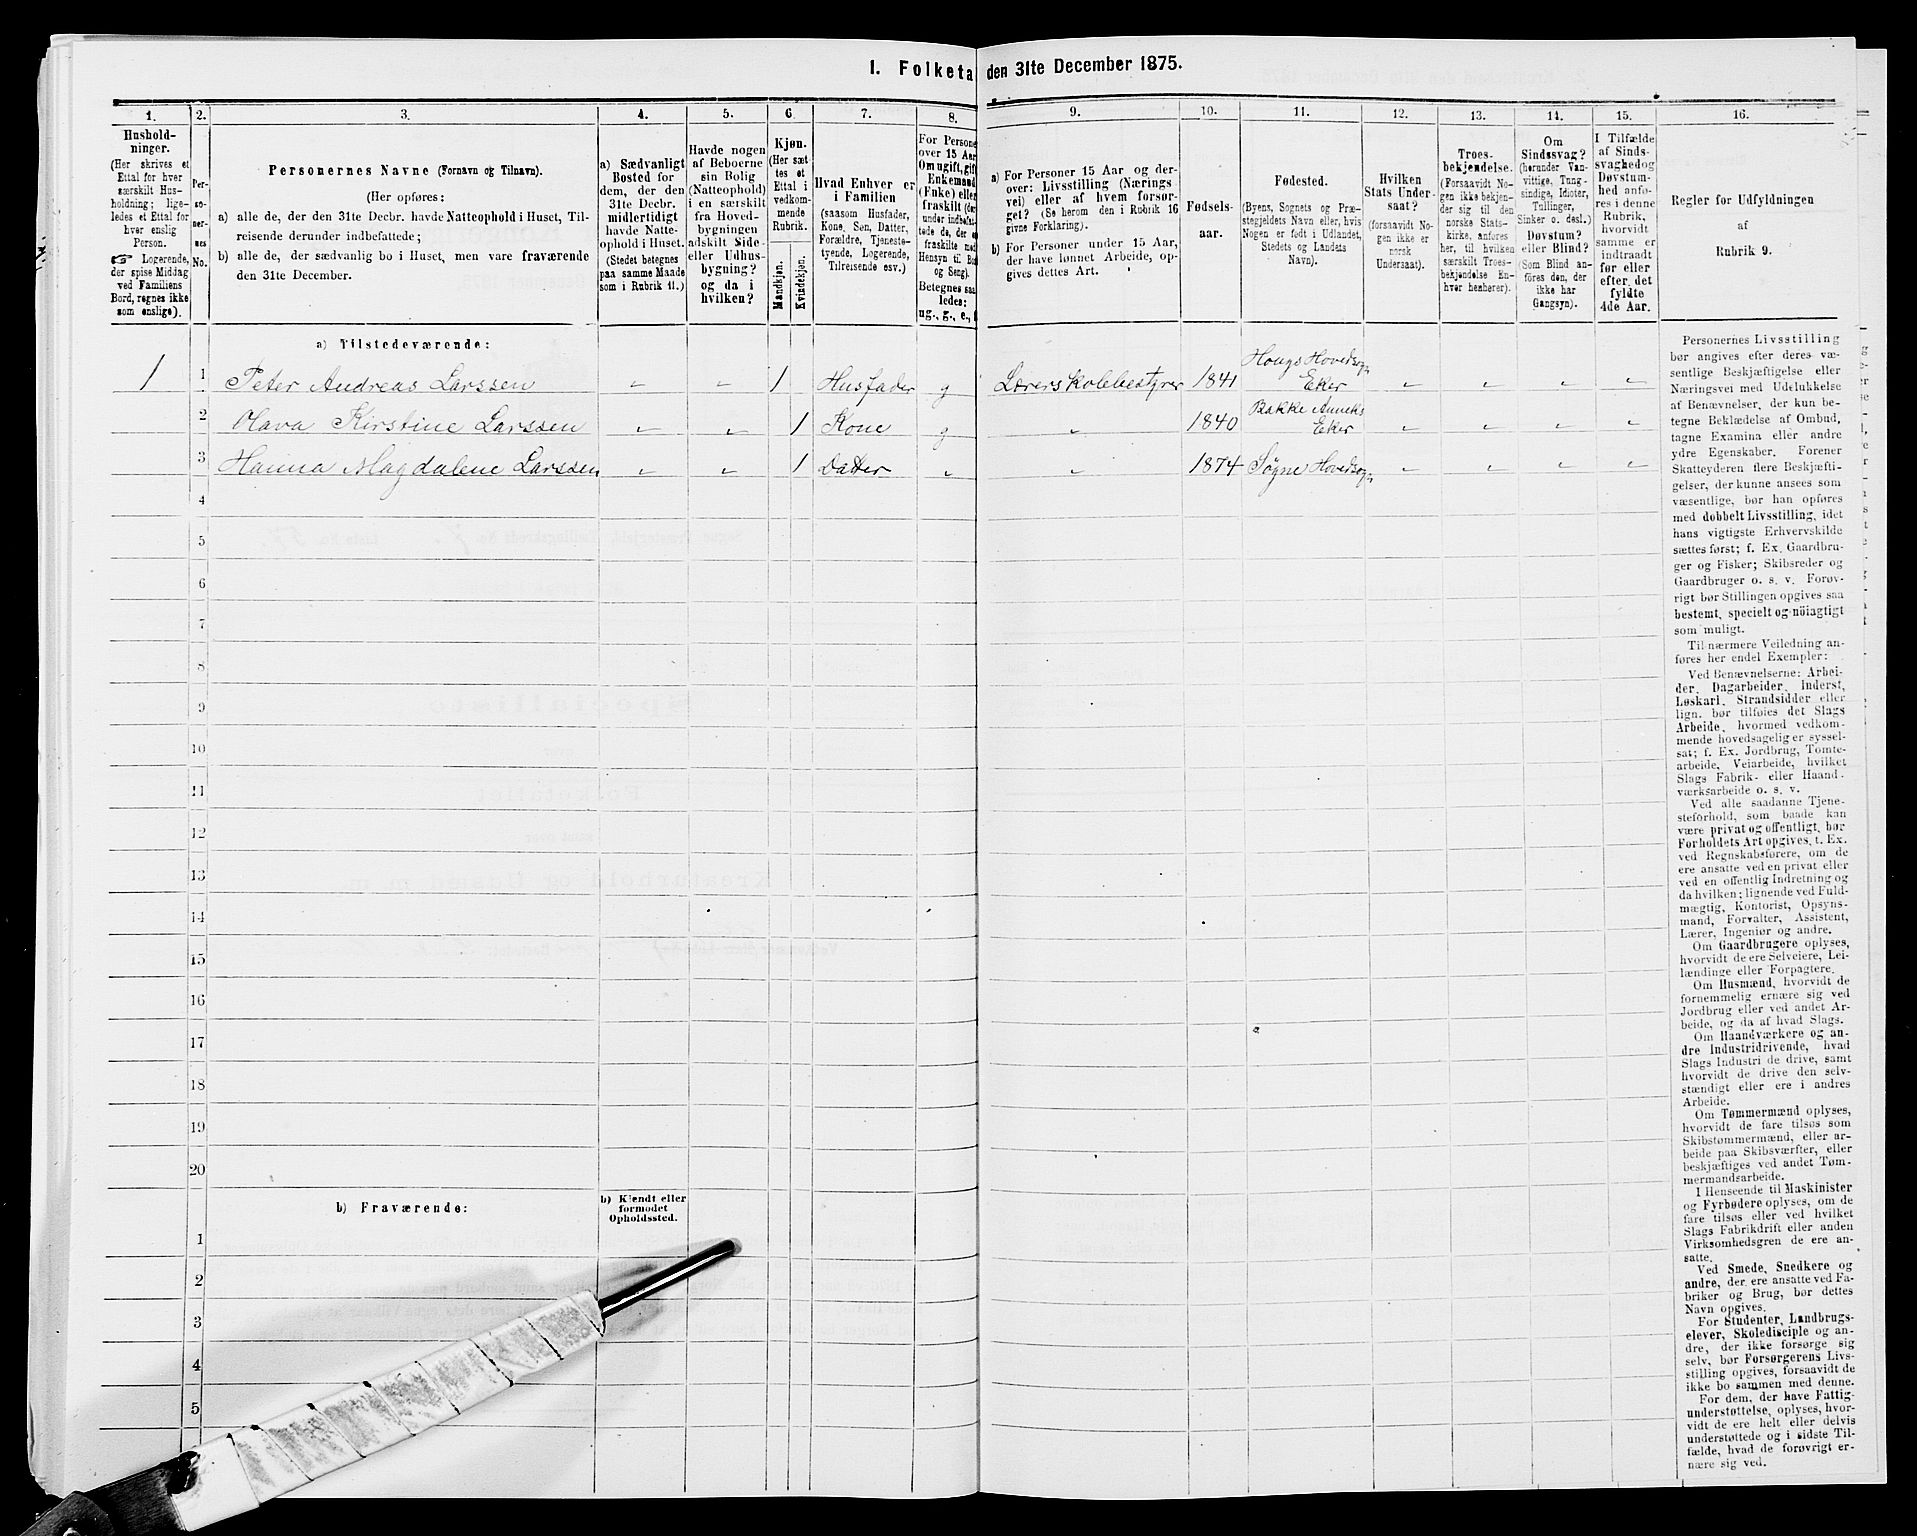 I. Folketa den 31te December 1875.
1.
Hushold-
ninger.
(Her skrives et
Ettal for hver
særskilt Hus-
holdning; lige-
ledes et Ettal for
hver enslig
Person.
☞ Logerende,
der spise Middag
ved Familiens
Bord, regnes ikke
som enslige).
2.
Per-
so-
ner-
nes
No.
3.
Personernes Navne (Fornavn og Tilnavn).
(Her opføres:
a) alle de, der den 31te Decbr. havde Natteophold i Huset, Til-
reisende derunder indbefattede;
b) alle de, der sædvanlig bo i Huset, men vare fraværende
den 31te December.
4.
a) Sædvanligt
Bosted for
dem, der den
31te Decbr.
midlertidigt
havde Natte-
ophold i Huset.
(Stedet betegnes
paa samme Maade
som i Rubrik 11.)
5.
Havde nogen
af Beboerne
sin Bolig
(Natteophold)
i en særskilt
fra Hoved-
bygningen
adskilt Side-
eller Udhus-
bygning?
og da i
hvilken?
6.
Kjøn.
(Her sæt-
tes et
Ettal i
vedkom-
mende
Rubrik.
Mandkjøn.
Kvindekjøn.
7.
Hvad Enhver er
i Familien
(saasom Husfader,
Kone, Søn, Datter,
Forældre, Tjeneste-
tyende, Logerende,
Tilreisende osv.)
8.
For Persone
over 15 Aar
Om ugift, gift
Enkemand
(Enke) eller
fraskilt (der
under indbefat-
tede de, der e
fraskilte med
Hensyn til Bo
og Seng).
Betegnes saa
ledes:
ug., g., e., f
9.
a) For Personer 15 Aar og der-
over: Livsstilling (Nærings
vei) eller af hvem forsør-
get? (Se herom den i Rubrik 16
givne Forklaring).
b) For Personer under 15 Aar,
der have lønnet Arbeide, op-
gives dettes Art.
10.
Fødsels-
aar.
11.
Fødested.
(Byens, Sognets og Præ-
stegjeldets Navn eller, hvis
Nogen er født i Udlandet,
Stedets og Landets
Navn).
12.
Hvilken
Stats Under-
saat?
(forsaavidt No-
gen ikke er
norsk
Undersaat).
13.
Troes-
bekjendelse.
(Forsaavidt No-
gen ikke bekjen-
der sig til den
norske Stats-
kirke, anføres
her, til hvilken
særskilt Troes-
bekjendelse En-
hver henhører).
14.
Om
Sindssvag?
(herunder Van-
vittige, Tung-
sindige, Idioter,
Tullinger,
Sinker o. desl.)
Døvstum?
eller Blind?
(Som Blind an-
føres den, der
ikke har
Gangsyn).
15.
I Tilfælde
af Sinds-
svaghed og
Døvstum-
hed anfø-
res i denne
Rubrik,
hvorvidt
samme er
indtraadt
før eller
efter det
fyldte
4de Aar.
16.
Regler for Udfyldningen
af
Rubrik 9.
a) Tilstedeværende:
1 1 Peter Andreas Larssen „ „ 1 Husfader g Lærerskolebestyrer 1841 Hougs Hovedsogn Eker „ „ „ „
2 Olava Kirstine Larssen „ „ 1 Kone g „ 1840 Bakke Anneks Eker „ „ „ „
3 Hanna Magdalene Larssen „ „ 1 Datter „ „ 1874 Søgne Hovedsogn „ „ „ „
4
5
6
7
8
9
10
11
12
13
14
15
16
17
18
19
20
b) Fraværende:
b) Kjendt eller
formodet
Opholdssted.
1
2
3
4
5
Personernes Livsstilling
bør angives efter deres væ-
sentlige Beskjæftigelse eller
Næringsvei med Udelukkelse
af Benævnelser, der kun be-
tegne Beklædelse af Ombud,
tagne Examina eller andre
ydre Egenskaber. Forener
Skatteyderen flere Beskjæfti-
gelser, der kunne ansees som
væsentlige, bør han opføres
med dobbelt Livsstilling, idet
hans vigtigste Erhvervskilde
sættes først; f. Ex. Gaardbru-
ger og Fisker; Skibsreder og
Gaardbruger o. s. v. Forøv-
rigt bør Stillingen opgives saa
bestemt, specielt og nöiagtigt
som muligt.
Til nærmere Veiledning an-
føres her endel Exempler:
Ved Benævnelserne: Arbei-
der, Dagarbeider, Inderst,
Løskarl, Strandsidder eller
lign. bør tilføies det Slags
Arbeide, hvormed vedkom-
mende hovedsagelig er syssel-
sat; f. Ex. Jordbrug, Tomte-
arbeide, Veiarbeide, hvilket
Slags Fabrik- eller Haand-
værksarbeide o. s. v.
Ved alle saadanne Tjene-
steforhold, som baade kan
være privat og offentligt, bør
Forholdets Art opgives, t. Ex.
ved Regnskabsførere, om de
ere ansatte ved en privat eller
ved en offentlig Indretning og
da hvilken; lignende ved Fuld-
mægtig, Kontorist, Opsyns-
mand, Forvalter, Assistent,
Lærer, Ingeniør og andre.
Om Gaardbrugere oplyses,
hvorvidt de ere Selveiere, Lei-
lændinge eller Forpagtere.
Om Husmænd, hvorvidt de
fornemmelig ernære sig ved
Jordbrug eller ved andet Ar-
beide, og da af hvad Slags.
Om Haandværkere og an-
dre Industridrivende, hvad
Slags Industri de drive, samt
hvorvidt de drive den selv-
stændigt eller ere i andres
Arbeide.
Om Tømmermænd oplyses,
hvorvidt de fare tilsøs som
Skibstømmermænd, eller ar-
beide paa Skibsværfter, eller
beskjæftiges ved andet Tøm-
mermandsarbeide.
I Henseende til Maskinister
og Fyrbødere oplyses, om de
fare tilsøs eller ved hvilket
Slags Fabrikdrift eller anden
Virksomhedsgren de ere an-
satte.
Ved Smede, Snedkere og
andre, der ere ansatte ved Fa-
briker og Brug, bør dettes
Navn opgives.
For Studenter, Landbrugs-
elever, Skoledisciple og an-
dre, der ikke forsørge sig
selv, bør Forsørgerens Livs-
stilling opgives, forsaavidt de
ikke bo sammen med denne.
For dem, der have Fattig-
understøttelse, oplyses, hvor-
vidt de ere helt eller delvis
understøttede og i sidste Til-
fælde, hvad de forøvrigt er-
nære sig ved.